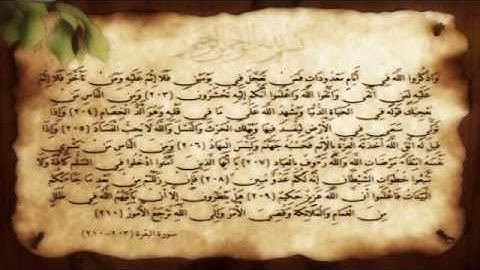 بسم الله الرحمن الرحيم
وَاذْكُرُوا اللَّهَ فِي أَيَّامٍ مَعْدُودَاتٍ فَمَنْ تَعَجَّلَ فِي يَوْمَيْنِ فَلَا إِثْمَ عَلَيْهِ وَمَنْ تَأَخَّرَ فَلَا إِثْمَ
عَلَيْهِ لِمَنِ اتَّقَى وَاتَّقُوا اللَّهَ وَاعْلَمُوا أَنَّكُمْ إِلَيْهِ تُحْشَرُونَ (٢٠٣) وَمِنَ النَّاسِ مَنْ
يُعْجِبُكَ قَوْلُهُ فِي الْحَيَاةِ الدُّنْيَا وَيُشْهِدُ اللَّهَ عَلَى مَا فِي قَلْبِهِ وَهُوَ أَلَدُّ الْخِصَامِ (٢٠٤) وَإِذَا
تَوَلَّى سَعَى فِي الْأَرْضِ لِيُفْسِدَ فِيهَا وَيُهْلِكَ الْحَرْثَ وَالنَّسْلَ وَاللَّهُ لَا يُحِبُّ الْفَسَادَ (٢٠٥) وَإِذَا
قِيلَ لَهُ اتَّقِ اللَّهَ أَخَذَتْهُ الْعِزَّةُ بِالْإِثْمِ فَحَسْبُهُ جَهَنَّمُ وَلَبِئْسَ الْمِهَادُ (٢٠٦) وَمِنَ النَّاسِ مَنْ يَشْرِي
نَفْسَهُ ابْتِغَاءَ مَرْضَاتِ اللَّهِ وَاللَّهُ رَءُوفٌ بِالْعِبَادِ (٢٠٧) يَا أَيُّهَا الَّذِينَ آمَنُوا ادْخُلُوا فِي السِّلْمِ كَافَّةً وَلَا
تَتَّبِعُوا خُطُوَاتِ الشَّيْطَانِ إِنَّهُ لَكُمْ عَدُوٌّ مُبِينٌ (٢٠٨) فَإِنْ زَلَلْتُمْ مِنْ بَعْدِ مَا جَاءَتْكُمُ
الْبَيِّنَاتُ فَاعْلَمُوا أَنَّ اللَّهَ عَزِيزٌ حَكِيمٌ (٢٠٩) هَلْ يَنْظُرُونَ إِلَّا أَنْ يَأْتِيَهُمُ اللَّهُ فِي ظُلَلٍ
مِنَ الْغَمَامِ وَالْمَلَائِكَةُ وَقُضِيَ الْأَمْرُ وَإِلَى اللَّهِ تُرْجَعُ الْأُمُورُ (٢١٠)
سورة البقرة (٢٠٣-٢١٠)